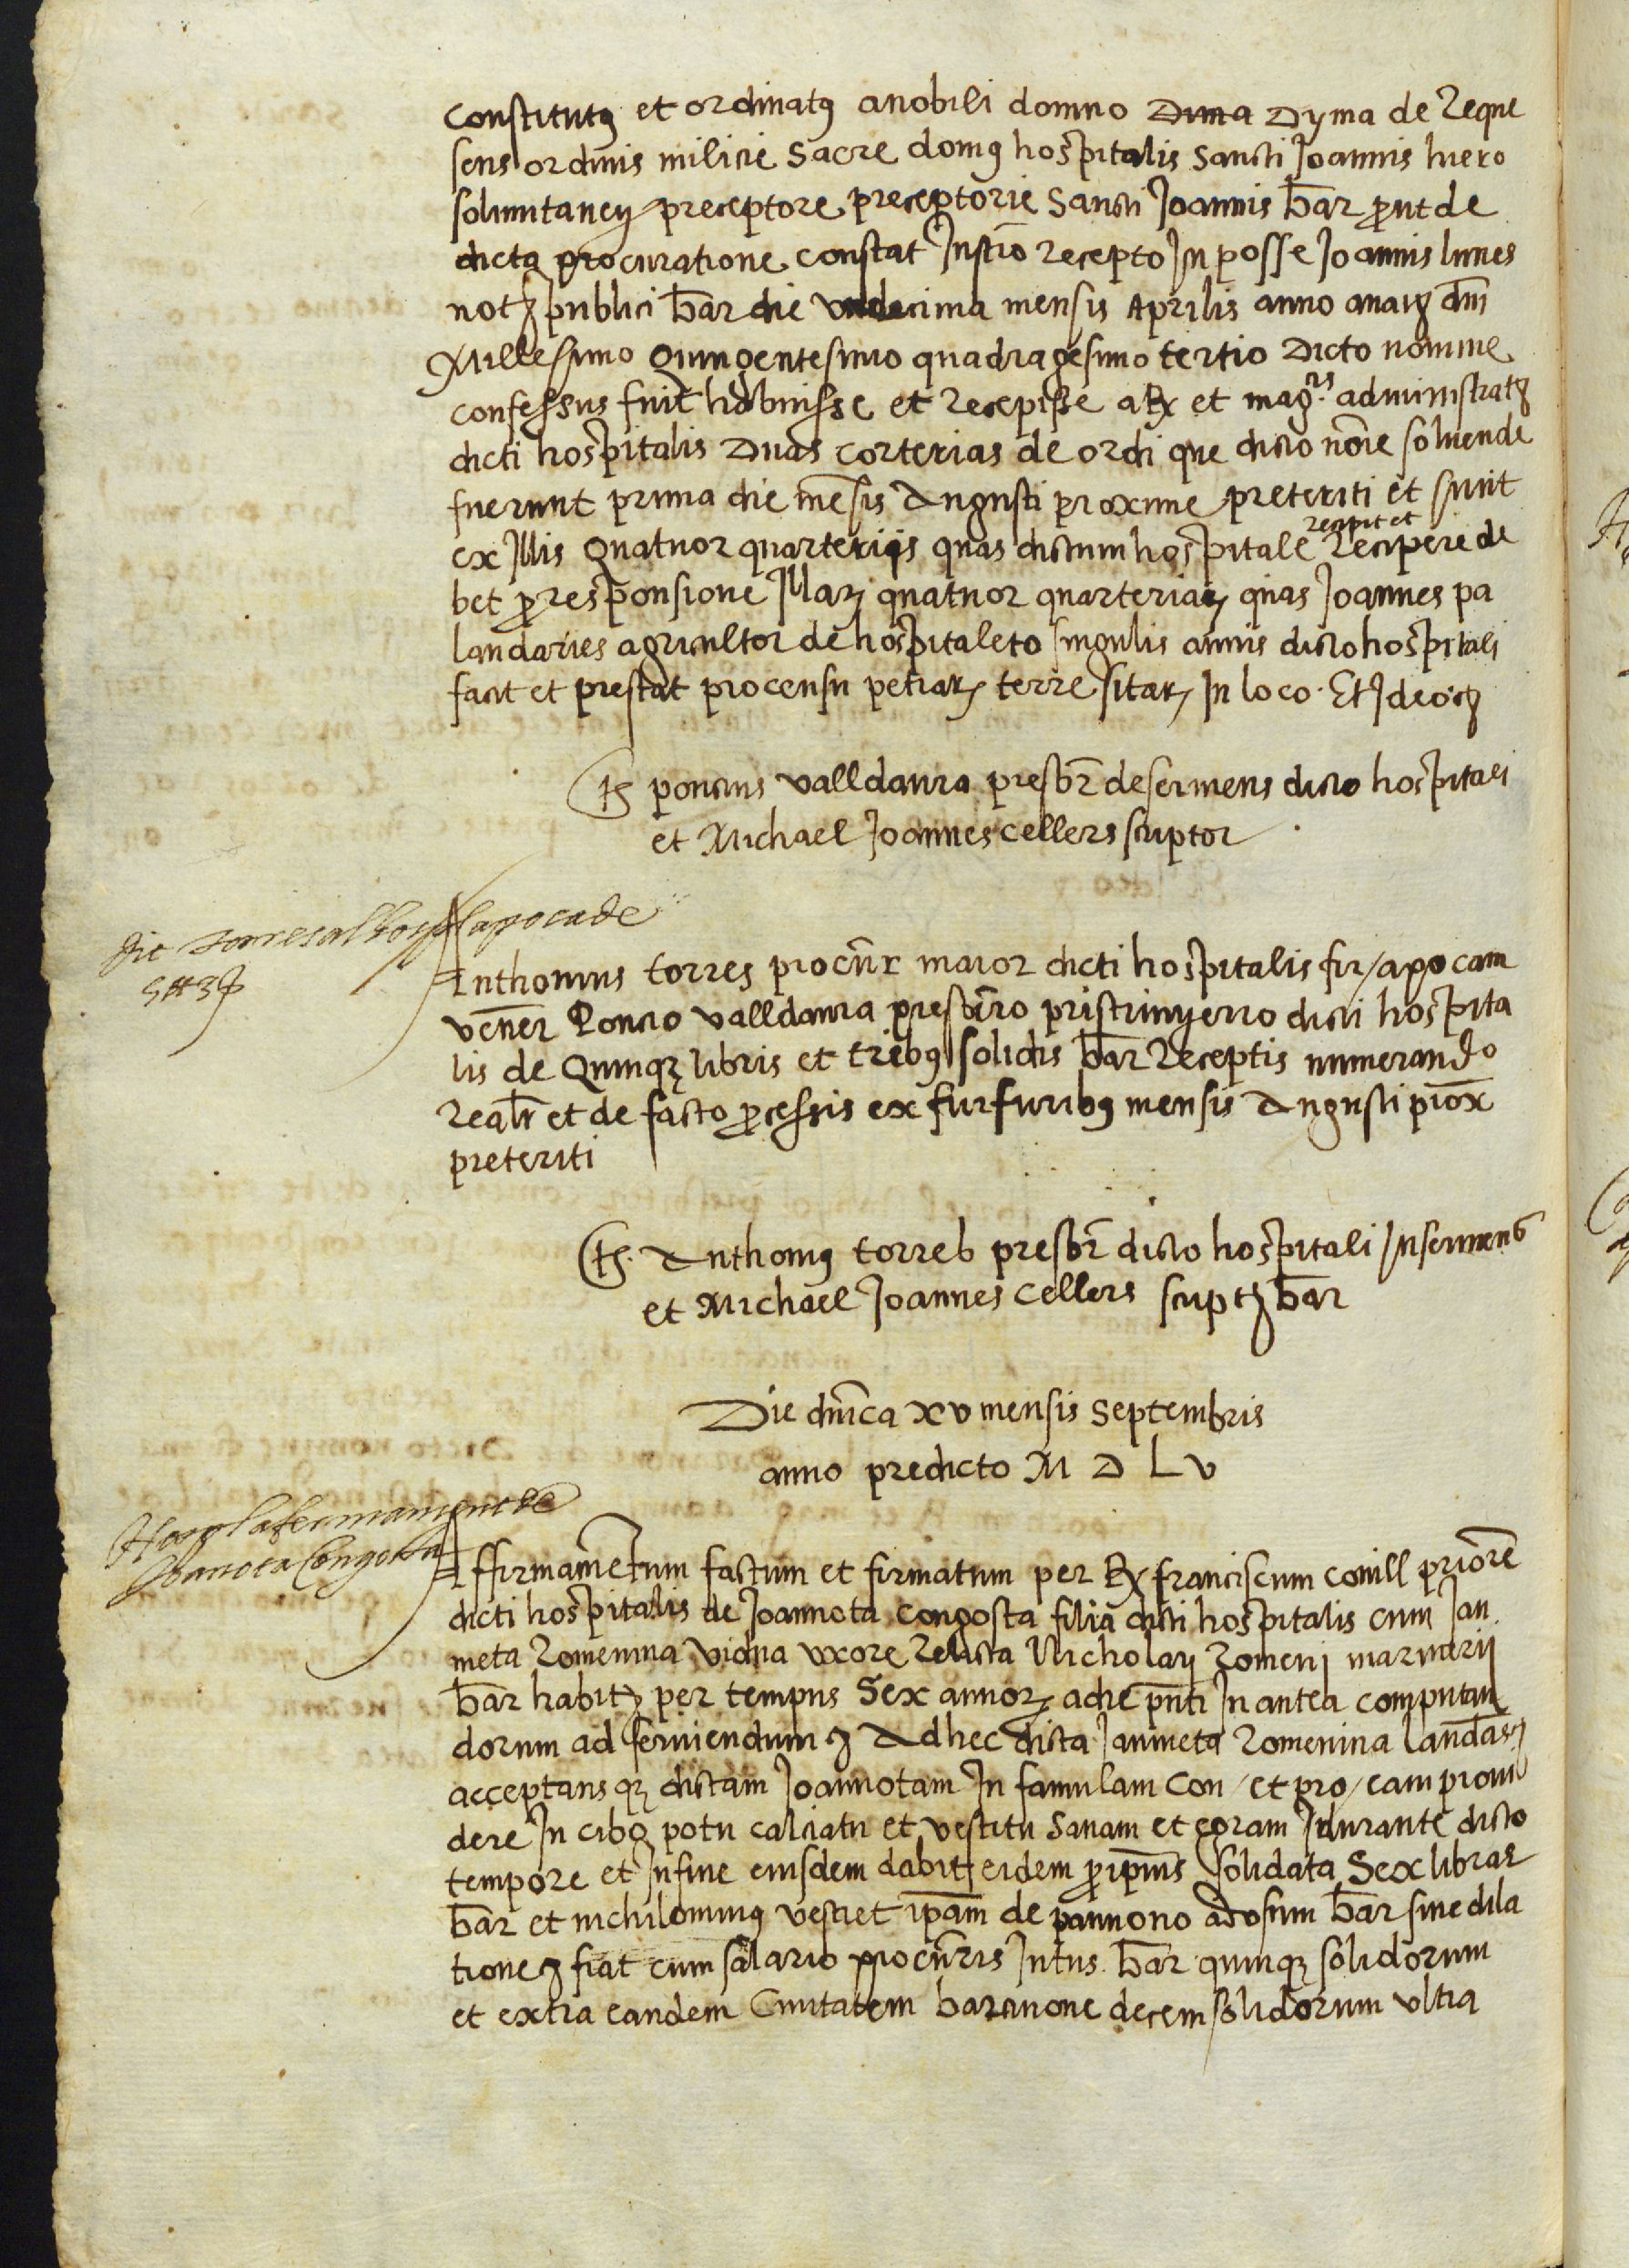 Constitutus et ordinatus a nobili domno Dima Dyma de Reque
sens ordinis milicie Sacre domus hospitalis Sancti Joannis hiero
solimitaney preceptore preceptorie Sancti Joannis bar prout de
dicta procuratione constat Instro recepto In posse Joannis lunes
notr publici bar die undecima mensis Aprilis anno a natr dni
Millessimo Quingentesimo quadragesimo tertio Dicto nomine
confessus fuit habuisse et recepisse a Rx et magcis administratr
dicti hospitalis Duas corterias de ordi que dicto noie solvende
fuerunt prima die mensis Augusti proxime preteriti et sunt
ex Illis Quatuor quarteriis quas dictum hospitale recipit et Recipere de
bet pro responsione Illarum quatuor quarteriarum quas Joannes pa
landaries agricultor de hospitaleto singulis annis dicto hospitali
facit et prestat pro censu petiarum terre sitarum In loco. Et Ideo etc
ts poncius valldaura presbr deserviens dicto hospitali
et Michael Joannes cellers scriptor
dit Torres al hospl apoca de
5 ₶ 3 s
Anthonius torres procur maior dicti hospitalis fir apocam
vener Poncio valldaura presbiro pristrinyerro dicti hospita
lis de Quinque libris et tribus solidis bar Receptis numerando
realr et de facto processis ex furfuribus mensis Augusti prox
preteriti
ts. Anthonius torres presbr dicto hospitali Inserviens
et Michael Joannes Cellers scriptr bar
Die dnica xv mensis Septembris
anno predicto M D L v
Hospl afermament de
Joanota Congosta
Affirmamentum factum et firmatum per Rx franciscum conill priorem
dicti hospitalis de Joannota congosta filia dicti hospitalis cum Jan
meta Romenina vidua uxore Relicta Nicholay Romeni marinerii
bar habitr per tempus Sex annorum a die pnti In antea computan
dorum ad serviendum etc Ad hec dicta Janmeta Romenina laudans
acceptans que dictam Joannotam In famulam Con et pro eam provi
dere In cibo potu calciatu et vestitu Sanam et egram Idurante dicto
tempore et In fine eiusdem dabit eidem pro ipius solidata Sex libras
bar et nichilominus vestiet ipam de pannono ad usum bar sine dila
tione etc fiat cum salario procuris Intus bar quinque solidorum
et extra eandem Civitatem barcinone decem solidorum ultra